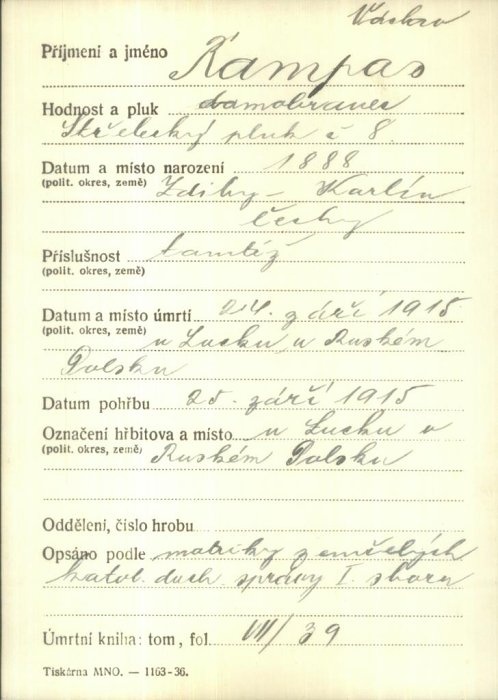 Václav
Příjmení a jméno Kampas
Hodnost a pluk domobranec
Střelecký pluk č 8.
Datum a místo narození 1888
(polit. okres, země) Zdiby - Karlín
Čechy
Příslušnost tamtéž
(polit. okres, země)
Datum a místo úmrtí 24. září 1915
(polit. okres, země) u Lucku v Ruském
Polsku
Datum pohřbu 25. září 1915
Označení hřbitova a místo u Lucku v
(polit. okres, země) Ruském Polsku
Oddělení, číslo hrobu
Opsáno podle matriky zemřelých
katol. duch. správy I. sboru
Úmrtní kniha: tom, fol. VII/39
Tiskárna MNO. — 1163-36.